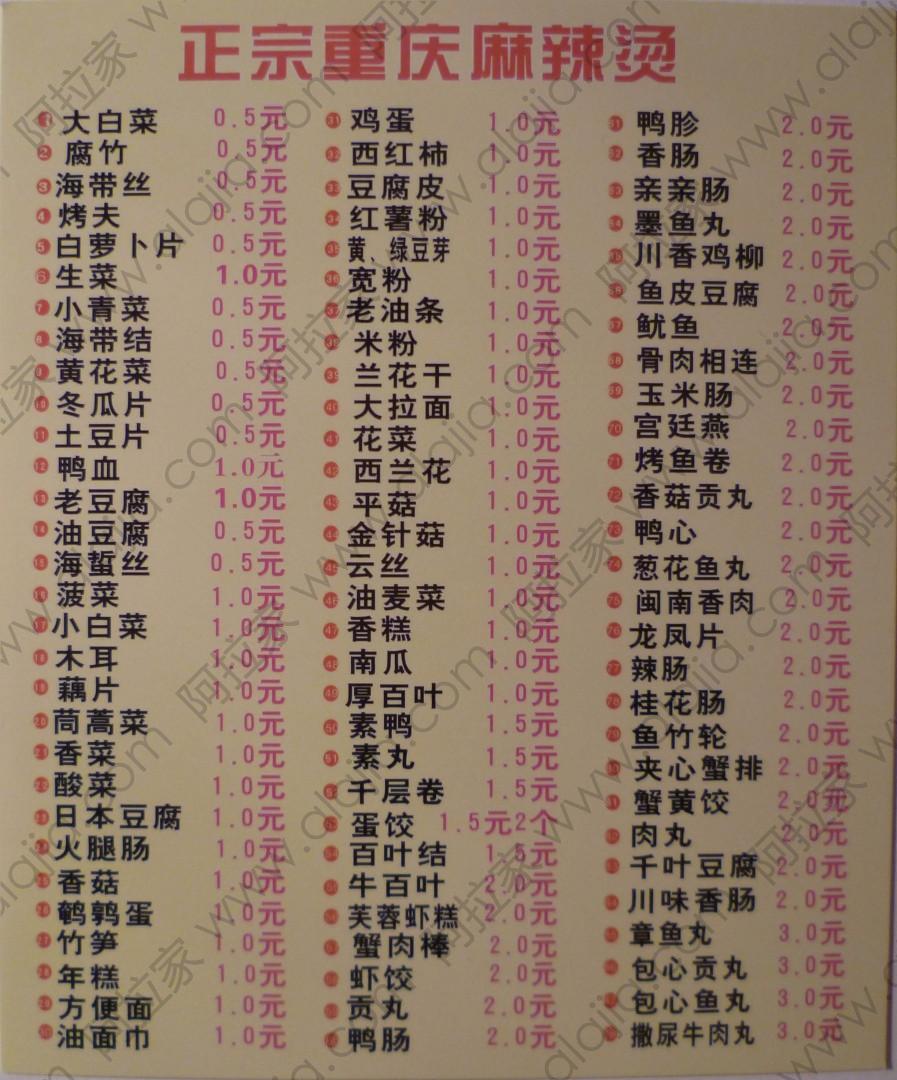 正宗重庆麻辣烫
1 大白菜 0.5元
2 腐竹 0.5元
3 海带丝 0.5元
4 烤夫 0.5元
5 白萝卜片 0.5元
6 生菜 1.0元
7 小青菜 0.5元
8 海带结 0.5元
9 黄花菜 0.5元
10 冬瓜片 0.5元
11 土豆片 0.5元
12 鸭血 1.0元
13 老豆腐 1.0元
14 油豆腐 0.5元
15 海蜇丝 0.5元
16 菠菜 1.0元
17 小白菜 1.0元
18 木耳 1.0元
19 藕片 1.0元
20 茼蒿菜 1.0元
21 香菜 1.0元
22 酸菜 1.0元
23 日本豆腐 1.0元
24 火腿肠 1.0元
25 香菇 1.0元
26 鹌鹑蛋 1.0元
27 竹笋 1.0元
28 年糕 1.0元
29 方便面 1.0元
30 油面巾 1.0元
31 鸡蛋 1.0元
32 西红柿 1.0元
33 豆腐皮 1.0元
34 红薯粉 1.0元
35 黄、绿豆芽 1.0元
36 宽粉 1.0元
37 老油条 1.0元
38 米粉 1.0元
39 兰花干 1.0元
40 大拉面 1.0元
41 花菜 1.0元
42 西兰花 1.0元
43 平菇 1.0元
44 金针菇 1.0元
45 云丝 1.0元
46 油麦菜 1.0元
47 香糕 1.0元
48 南瓜 1.0元
49 厚百叶 1.0元
50 素鸭 1.5元
51 素丸 1.5元
52 千层卷 1.5元
53 蛋饺 1.5元2个
54 百叶结 1.5元
55 牛百叶 2.0元
56 芙蓉虾糕 2.0元
57 蟹肉棒 2.0元
58 虾饺 2.0元
59 贡丸 2.0元
60 鸭肠 2.0元
61 鸭胗 2.0元
62 香肠 2.0元
63 亲亲肠 2.0元
64 墨鱼丸 2.0元
65 川香鸡柳 2.0元
66 鱼皮豆腐 2.0元
67 鱿鱼 2.0元
68 骨肉相连 2.0元
69 玉米肠 2.0元
70 宫廷燕 2.0元
71 烤鱼卷 2.0元
72 香菇贡丸 2.0元
73 鸭心 2.0元
74 葱花鱼丸 2.0元
75 闽南香肉 2.0元
76 龙凤片 2.0元
77 辣肠 2.0元
78 桂花肠 2.0元
79 鱼竹轮 2.0元
80 夹心蟹排 2.0元
81 蟹黄饺 2.0元
82 肉丸 2.0元
83 千叶豆腐 2.0元
84 川味香肠 2.0元
85 章鱼丸 3.0元
86 包心贡丸 3.0元
87 包心鱼丸 3.0元
88 撒尿牛肉丸 3.0元
阿拉家 www.alajia.com